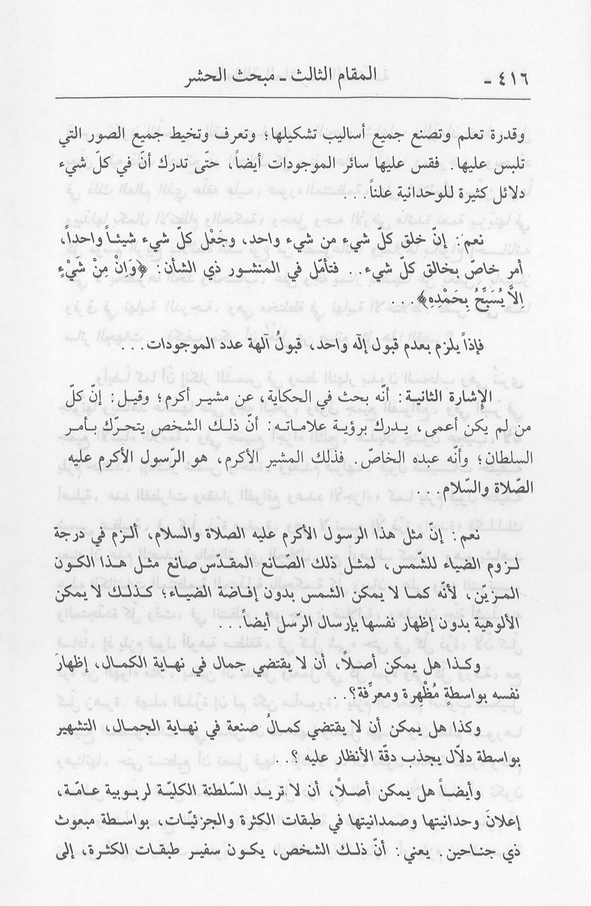 ٤١٦ - المقام الثالث ـ مبحث الحشر
وقدرة تعلم وتصنع جميع أساليب تشكيلها؛ وتعرف وتخيط جميع الصور التي
تلبس عليها. فقس عليها سائر الموجودات أيضاً، حتّى تدرك أنّ في كلّ شيء
دلائل كثيرة للوحدانية علناً...
نعم: إنّ خلق كلّ شيء من شيء واحد، وجَعْل كلّ شيء شيئـاً واحداً،
أمر خاصّ بخالق كلّ شيء.. فتأمّل في المنشور ذي الشأن: ﴿وَاِنْ مِنْ شَيْءٍ
اِلَّا يُسَبِّحُ بِحَمْدِهِ﴾...
فإذاً يلزم بعدم قبول إلٓه واحد، قبولُ آلهة عدد الموجودات...
الإشارة الثانية: أنّه بحث في الحكاية، عن مشير أكرم؛ وقيل: إنّ كلّ
من لم يكن أعمى، يدرك برؤية علاماتـه: أنّ ذلـك الشخص يتحرّك بـأمـر
السلطان؛ وأنّه عبده الخاصّ. فذلك المشير الأكرم، هو الرّسول الأكرم عليه
الصّلاة والسّلام...
نعم: إنّ مثل هذا الرسول الأكرم عليه الصلاة والسلام، ألـزم في درجة
لـزوم الضياء للشّمس، لمثل ذلك الصّانع المقدّس صانع مثل هـذا الكون
المـزيّن، لأنّه كمـا لا يمكن الشمس بدون إفـاضة الضياء؛ كـذلـك لا يمكن
الألوهية بدون إظهار نفسها بإرسال الرّسل أيضاً...
وكـذا هل يمكن أصـلاً، أن لا يقتضي جمال في نهاية الكمال، إظهارَ
نفسه بواسطةٍ مُظْهِرة ومعرِّفة؟..
وكذا هل يمكن أن لا يقتضي كمـالُ صنعة في نهاية الجمال، التشهير
بواسطة دلّال يجذب دقّة الأنظار عليه ؟..
وأيضـاً هل يمكن أصـلاً، أن لا تـريـد السّلطنة الكليّـة لـربـوبية عـامّـة،
إعلانَ وحدانيتها وصمدانيتها في طبقات الكثرة والجزئيّـات، بواسـطة مبعوث
ذي جنـاحين. يعني: أنّ ذلـك الشخص، يكـون سفيـر طبقـات الكثـرة، إلى